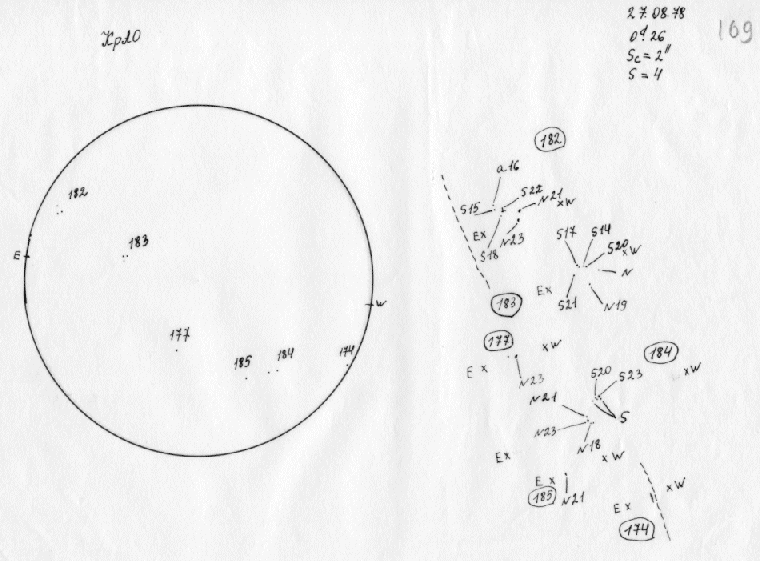 27.08.78
169
КрАО
0d.26
Sc = 2"
S = 4
182
183
E
177
185
184
174
W
182
a16
S15
S22
N21
xW
Ex
N23
S18
S17
S14
S20
xW
N
Ex
S21
N19
183
177
xW
Ex
N23
184
S20
S23
xW
N21
S
N23
N18
Ex
xW
Ex
185
N21
xW
Ex
174